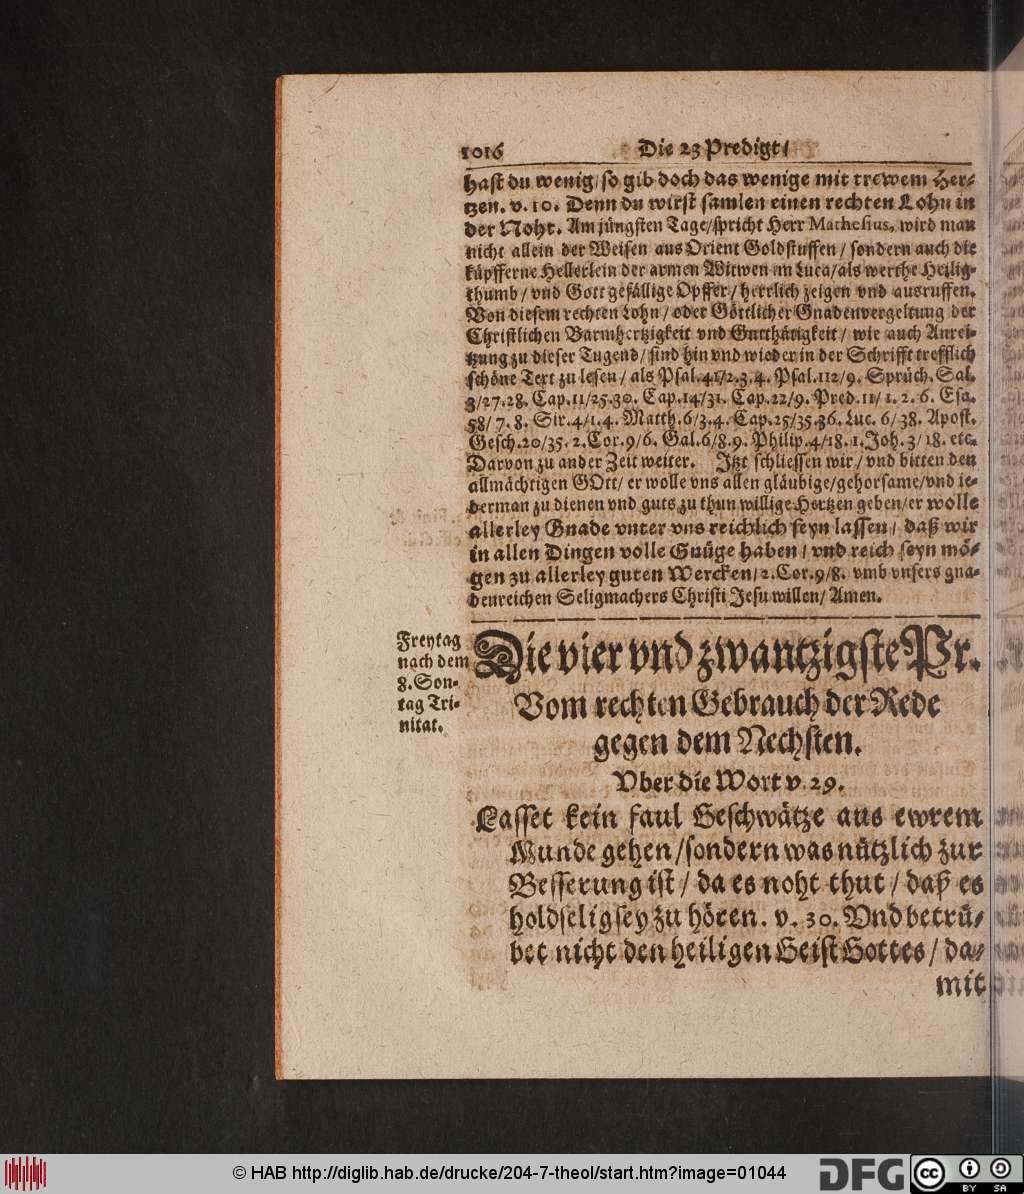 1016 Die 23 Predigt/
hast du wenig/ so gib doch das wenige mit trewem Her-
tzen. v. 10. Denn du wirst samlen einen rechten Lohn in
der Noht. Am jüngsten Tage/ spricht Herr Mathesius, wird man
nicht allein der Weisen aus Orient Goldstuffen/ sondern auch die
küpfferne Hellerlein der armen Witwen im Luca/ als werthe Heilig-
thumb/ vnd Gott gefällige Opffer/ herrlich zeigen vnd ausruffen.
Von diesem rechten Lohn/ oder Göttlicher Gnadenvergeltung der
Christlichen Barmhertzigkeit vnd Gutthätigkeit/ wie auch Anrei-
tzung zu dieser Tugend/ sind hin vnd wieder in der Schrifft trefflich
schöne Text zu lesen/ als Psal. 41/2.3.4. Psal. 112/9. Sprüch. Sal.
3/27.28. Cap. 11/25.30. Cap. 14/31. Cap. 22/9. Pred. 11/1.2.6. Esa.
58/7.8. Sir. 4/1.4. Matth. 6/3.4. Cap. 25/35.36. Luc. 6/38. Apost.
Gesch. 20/35. 2. Cor. 9/6. Gal. 6/8.9. Philip. 4/18. 1. Joh. 3/18. etc.
Darvon zu ander Zeit weiter. Jtzt schliessen wir/ vnd bitten den
allmächtigen GOtt/ er wolle vns allen gläubige/ gehorsame/ vnd je-
derman zu dienen vnd guts zu thun willige Hertzen geben/ er wolle
allerley Gnade vnter vns reichlich seyn lassen/ daß wir
in allen Dingen volle Gnüge haben/ vnd reich seyn mö-
gen zu allerley guten Wercken/ 2. Cor. 9/8. vmb vnsers gna-
denreichen Seligmachers Christi Jesu willen/ Amen.
Freytag
nach dem
8. Son-
tag Tri-
nitat.
Die vier vnd zwantzigste Pr.
Vom rechten Gebrauch der Rede
gegen dem Nechsten.
Vber die Wort v. 29.
Lasset kein faul Geschwätze aus ewrem
Munde gehen/ sondern was nützlich zur
Besserung ist/ da es noht thut/ daß es
holdselig sey zu hören. v. 30. Vnd betrü-
bet nicht den heiligen Geist Gottes/ da-
mit
© HAB http://diglib.hab.de/drucke/204-7-theol/start.htm?image=01044
DFG
cc BY SA